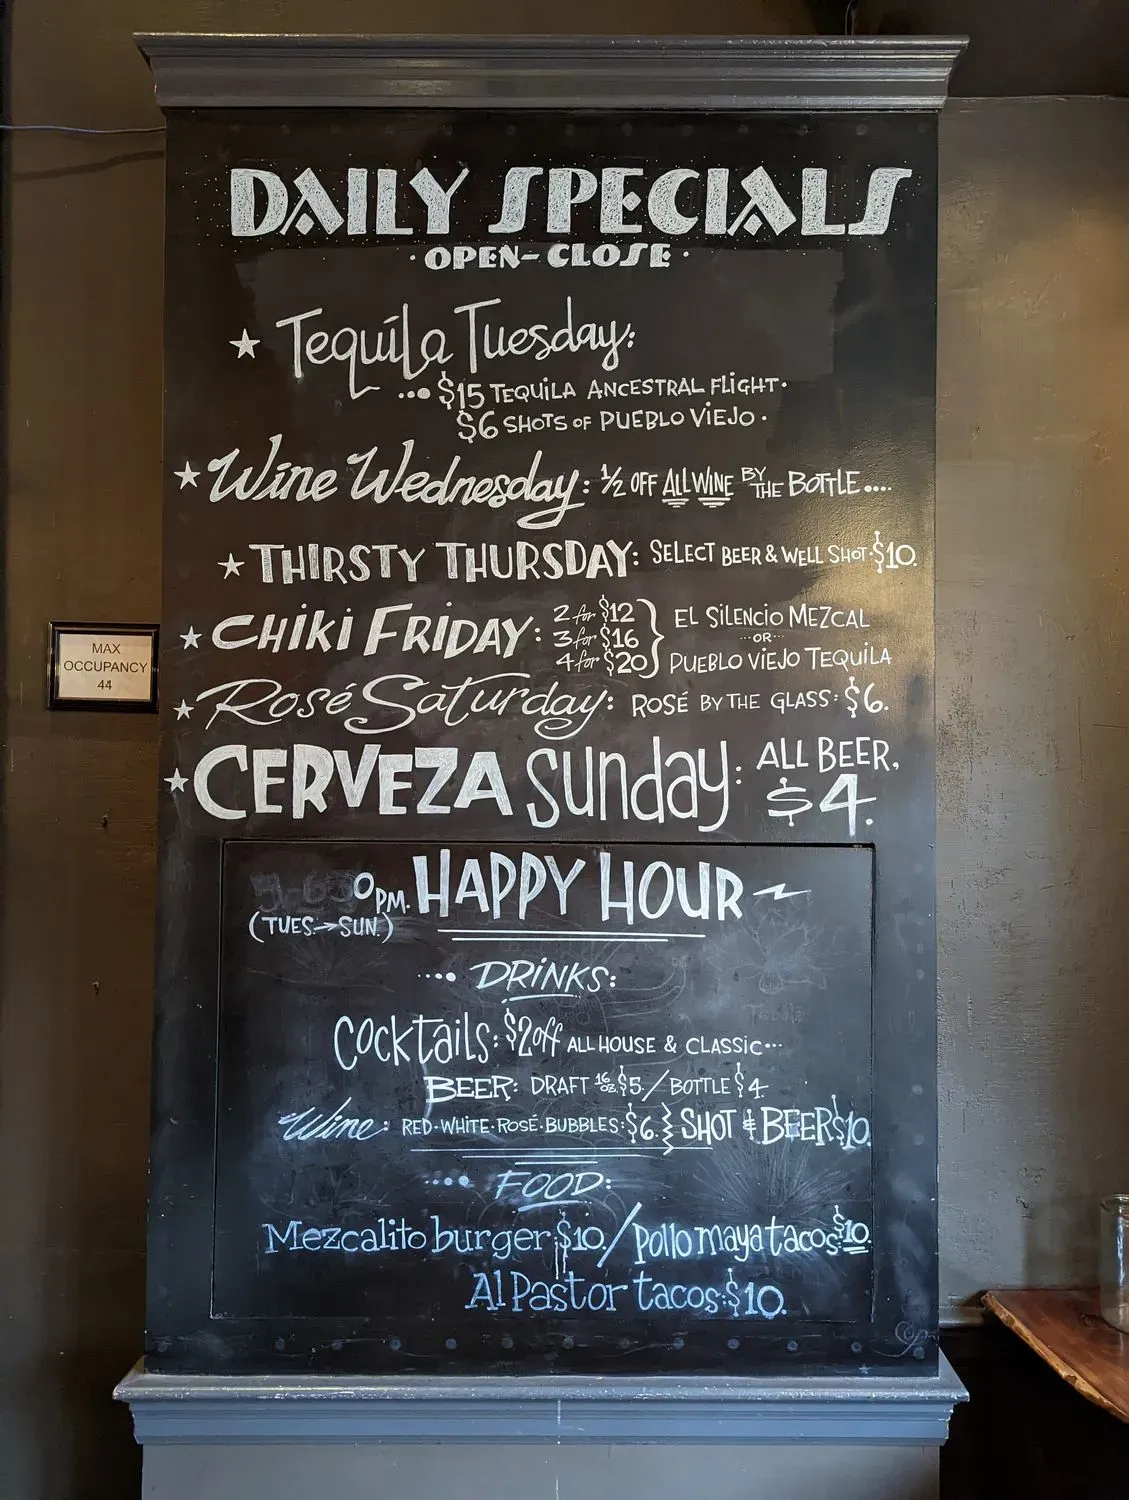 DAILY SPECIALS
· OPEN-CLOSE ·
★ Tequila Tuesday:
$15 TEQUILA ANCESTRAL FLIGHT·
$6 SHOTS OF PUEBLO VIEJO ·
★ Wine Wednesday: 1/2 OFF ALL WINE BY THE BOTTLE....
★ THIRSTY THURSDAY: SELECT BEER & WELL SHOT·$10.
★ CHIKI FRIDAY: 2 for $12 3 for $16 4 for $20 } EL SILENCIO MEZCAL ···OR··· PUEBLO VIEJO TEQUILA
★ Rosé Saturday: ROSÉ BY THE GLASS: $6.
★ CERVEZA Sunday: ALL BEER, $4.
MAX
OCCUPANCY
44
PM. HAPPY HOUR
(TUES.→SUN.)
.... DRINKS:
Cocktails: $2 off ALL HOUSE & CLASSIC...
BEER: DRAFT 16 oz. $5. / BOTTLE $4.
Wine: RED·WHITE·ROSÉ·BUBBLES:$6. SHOT & BEER $10.
.... FOOD:
Mezcalito burger $10. / pollo maya tacos $10.
Al Pastor tacos: $10.